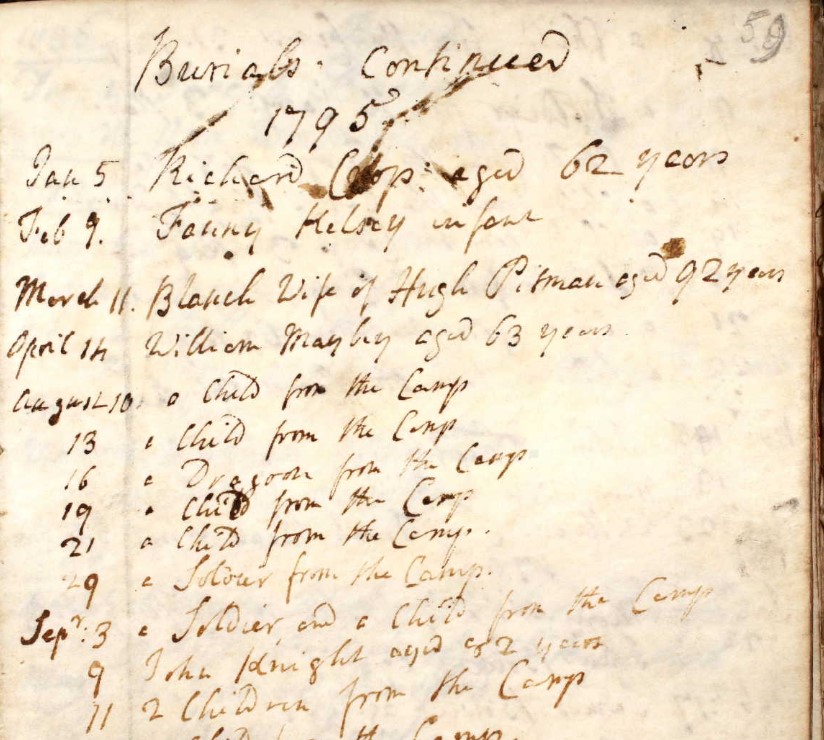 59
Burials Continued
1795
Jan 5 Richard aged 62 years
Feb 9. Fanny Helsey infant
March 11. Blanch Wife of Hugh Pitman aged 92 years
April 14 William Maybey aged 63 years
August 10 a Child from the Camp
13 a Child from the Camp
16 a Dragoon from the Camp
19 a Child from the Camp
21 a Child from the Camp.
29 a Soldier from the Camp.
Sepr: 3 a Soldier and a Child from the Camp
9 John Knight aged 82 years
11 2 Children from the Camp
Child the Camp.